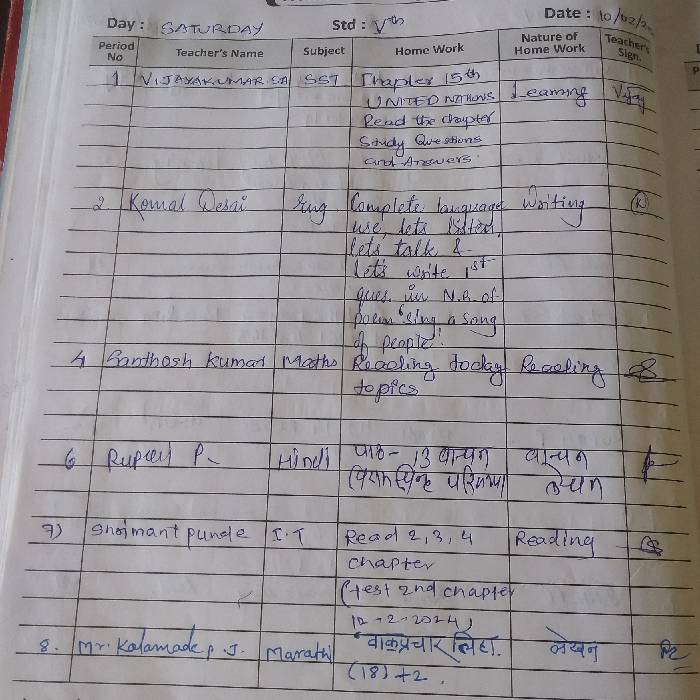 Day : SATURDAY Std : Vth Date : 10/02/2
Period No Teacher's Name Subject Home Work Nature of Home Work Teacher's Sign.
1 VIJAYAKUMAR SST Chapter 15th
UNITED NATIONS Learning
Read the chapter
Study Questions
and Answers.
2 Komal Desai Eng Complete language Writing
use, lets listen,
lets talk &
let's write 1st
ques. in N.B. of
poem 'Sing a song
of people'.
4 Santhosh Kumar Maths Reading today Reading
topics
6 Rupali P. Hindi पाठ - 13 वाचन वाचन
विरामचिन्ह लेखन
7) Shrimant punde I.T Read 2, 3, 4 Reading
chapter
(test 2nd chapter
12-2-2024)
8. Mr. Kalamade p. J. Marathi वाकप्रचार लिहा. लेखन
(18) + 2.